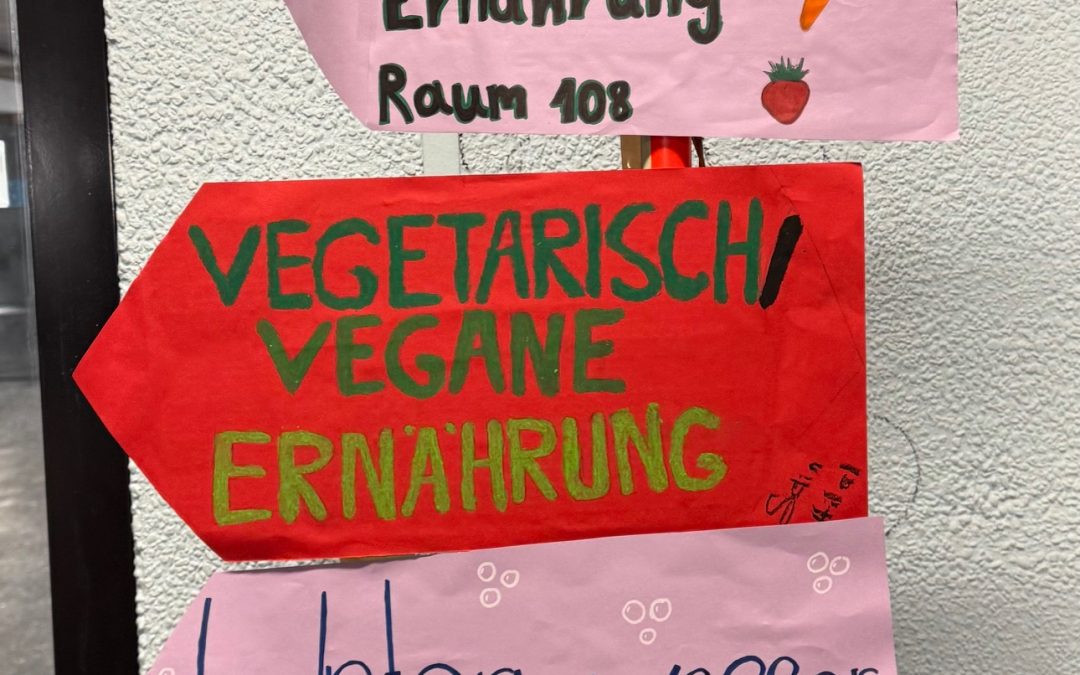 Ernährung
Raum 108
VEGETARISCH/
VEGANE
ERNÄHRUNG